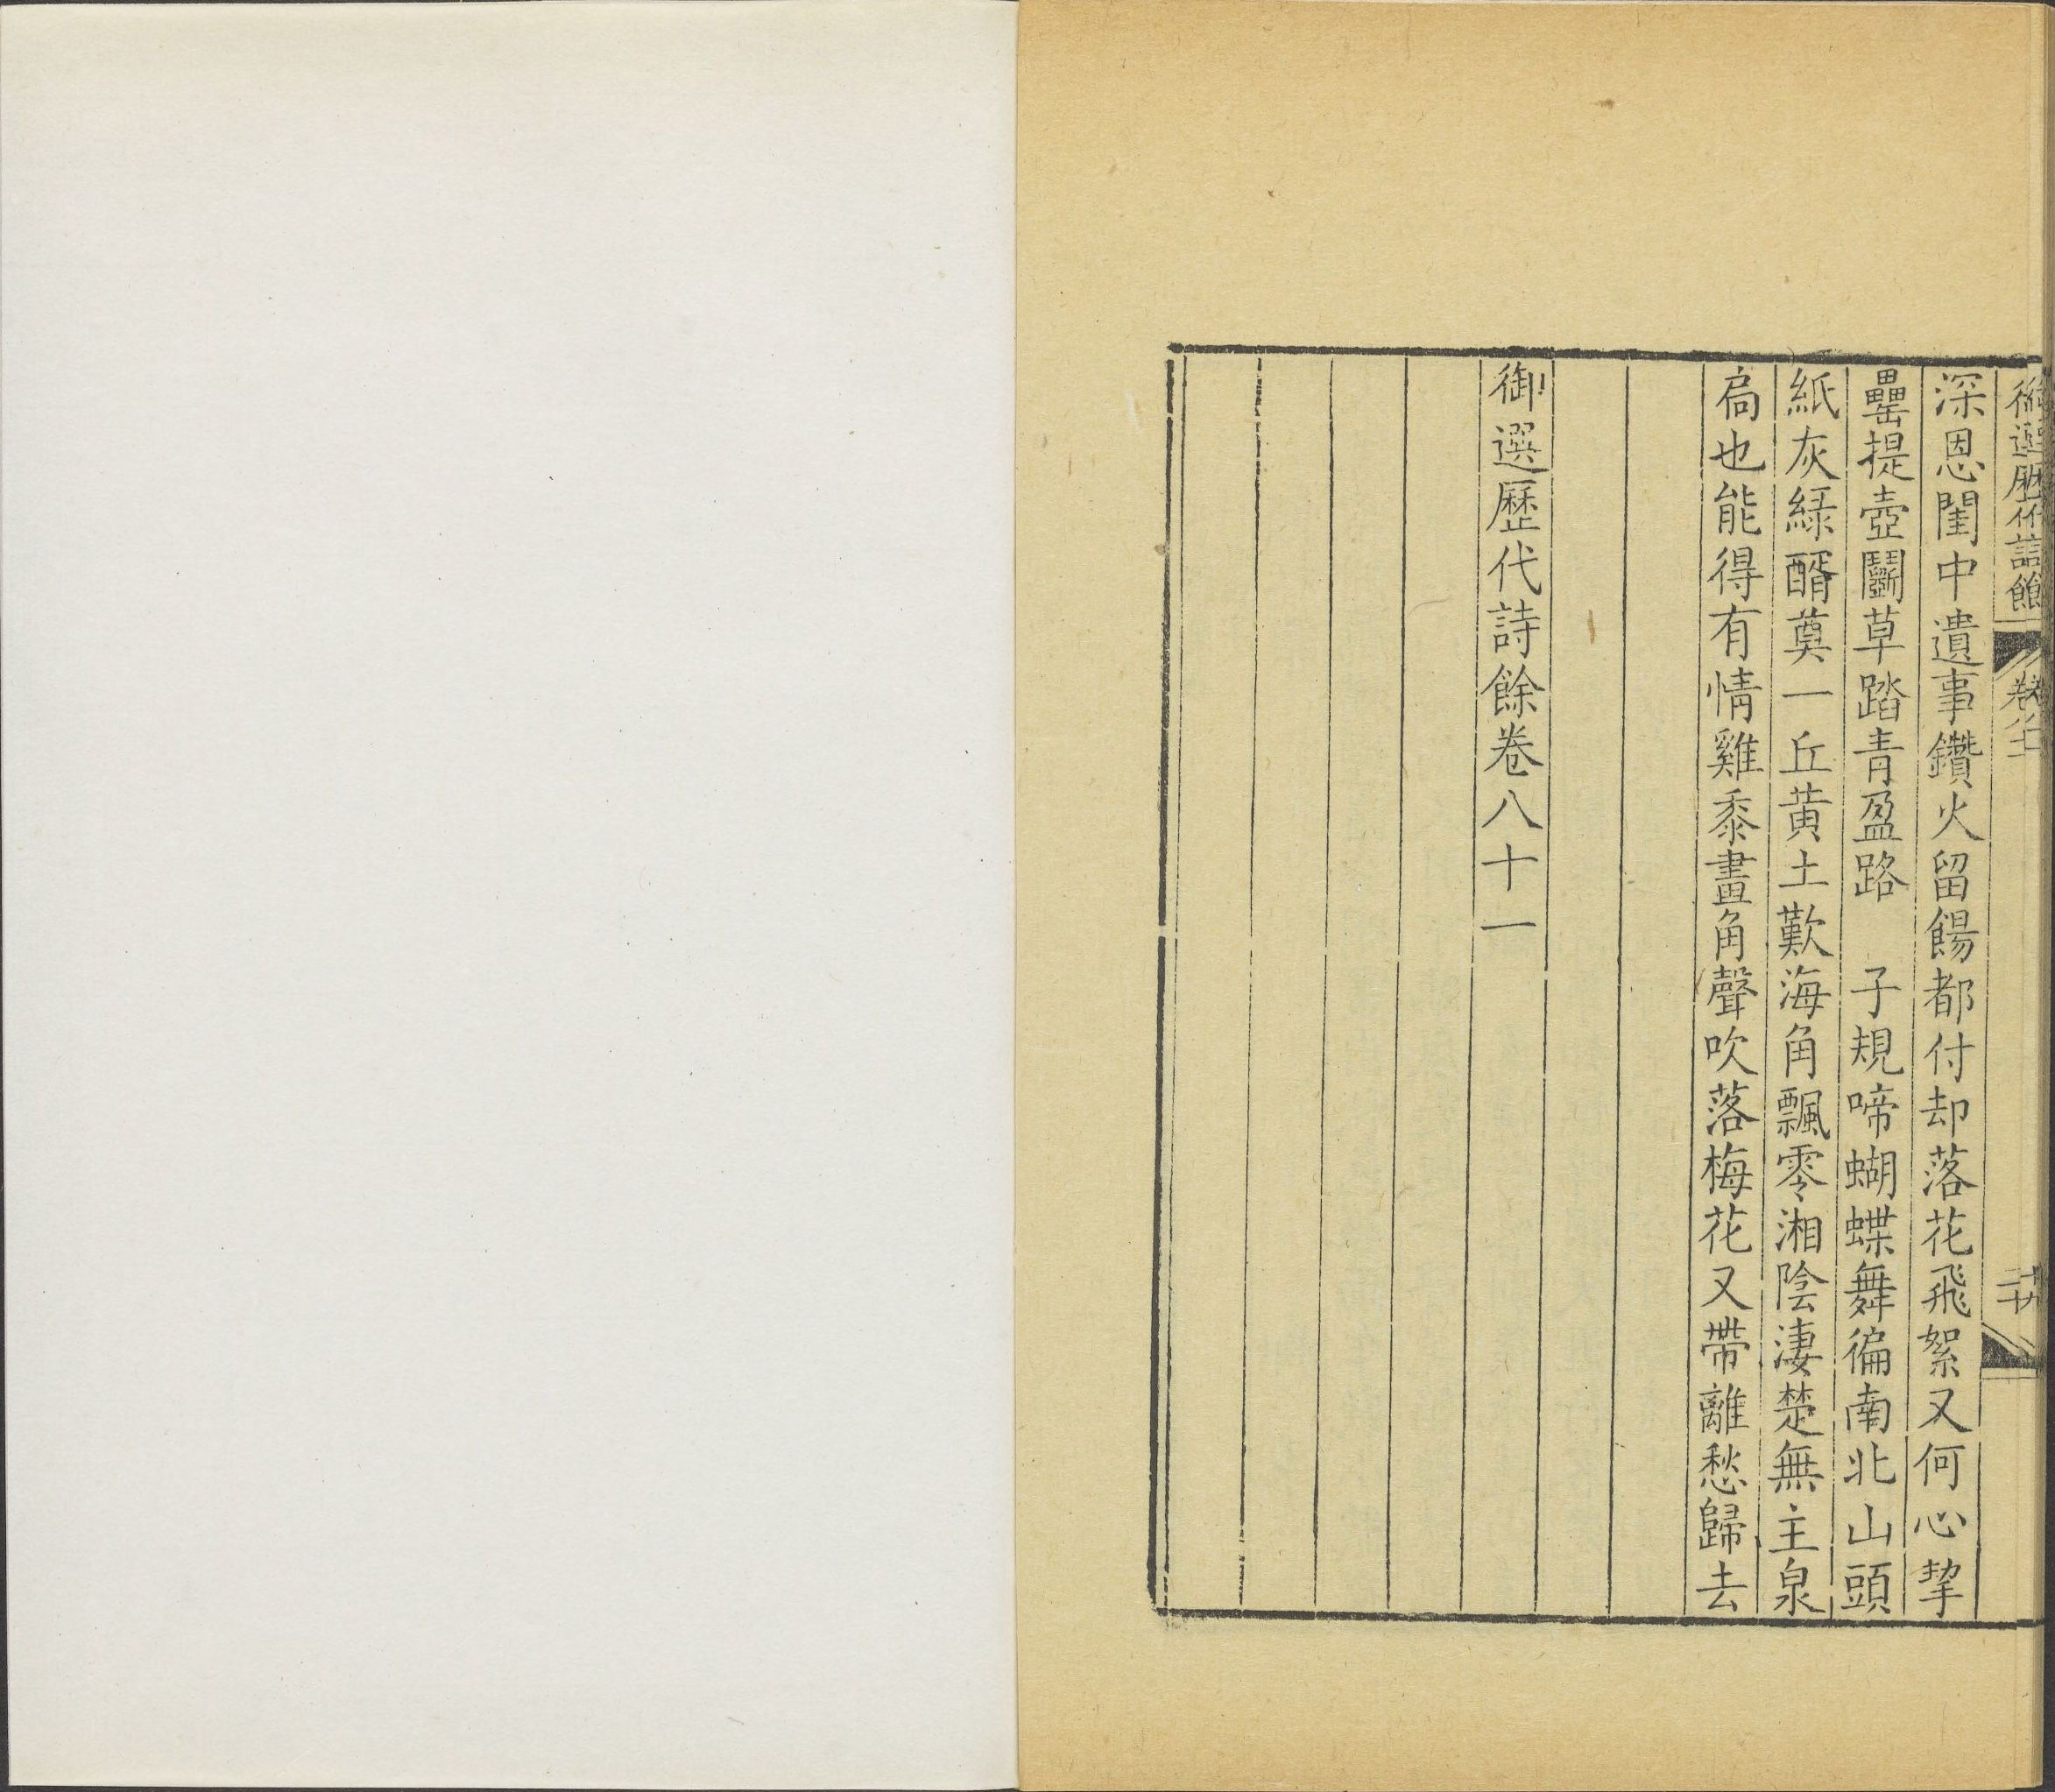 御選歷代詩餘 卷八十一 二十九
深恩閨中遺事鑽火留餳都付却落花飛絮又何心挈
罍提壺鬬草踏青盈路 子規啼蝴蝶舞徧南北山頭
紙灰綠醑奠一丘黃土歎海角飄零湘陰淒楚無主泉
扃也能得有情雞黍畫角聲吹落梅花又帶離愁歸去
御選歷代詩餘卷八十一